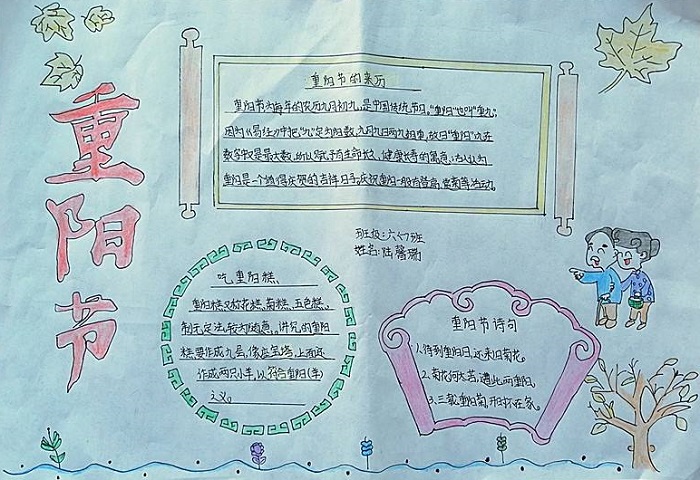 重阳节
重阳节的来历
重阳节为每年的农历九月初九,是中国传统节日。"重阳"也叫"重九",
因为《易经》中把"九"定为阳数,九月九日两九相重,故曰"重阳",九在
数字中又是最大数,所以赋予有生命长久、健康长寿的寓意,古人认为
重阳是一个值得庆贺的吉祥日子,庆祝重阳一般有登高,赏菊等活动。
班级:六〈7〉班
姓名:陆馨瑞
吃重阳糕
重阳糕又称花糕、菊糕、五色糕、
制无定法,较为随意。讲究的重阳
糕要作成九层,像座宝塔,上面还
作成两只小羊,以符合重阳(羊)
之义。
重阳节诗句
1、待到重阳日,还来旧菊花。
2、菊花何太苦,遭此两重阳。
3、三载重阳菊,开时不在家。